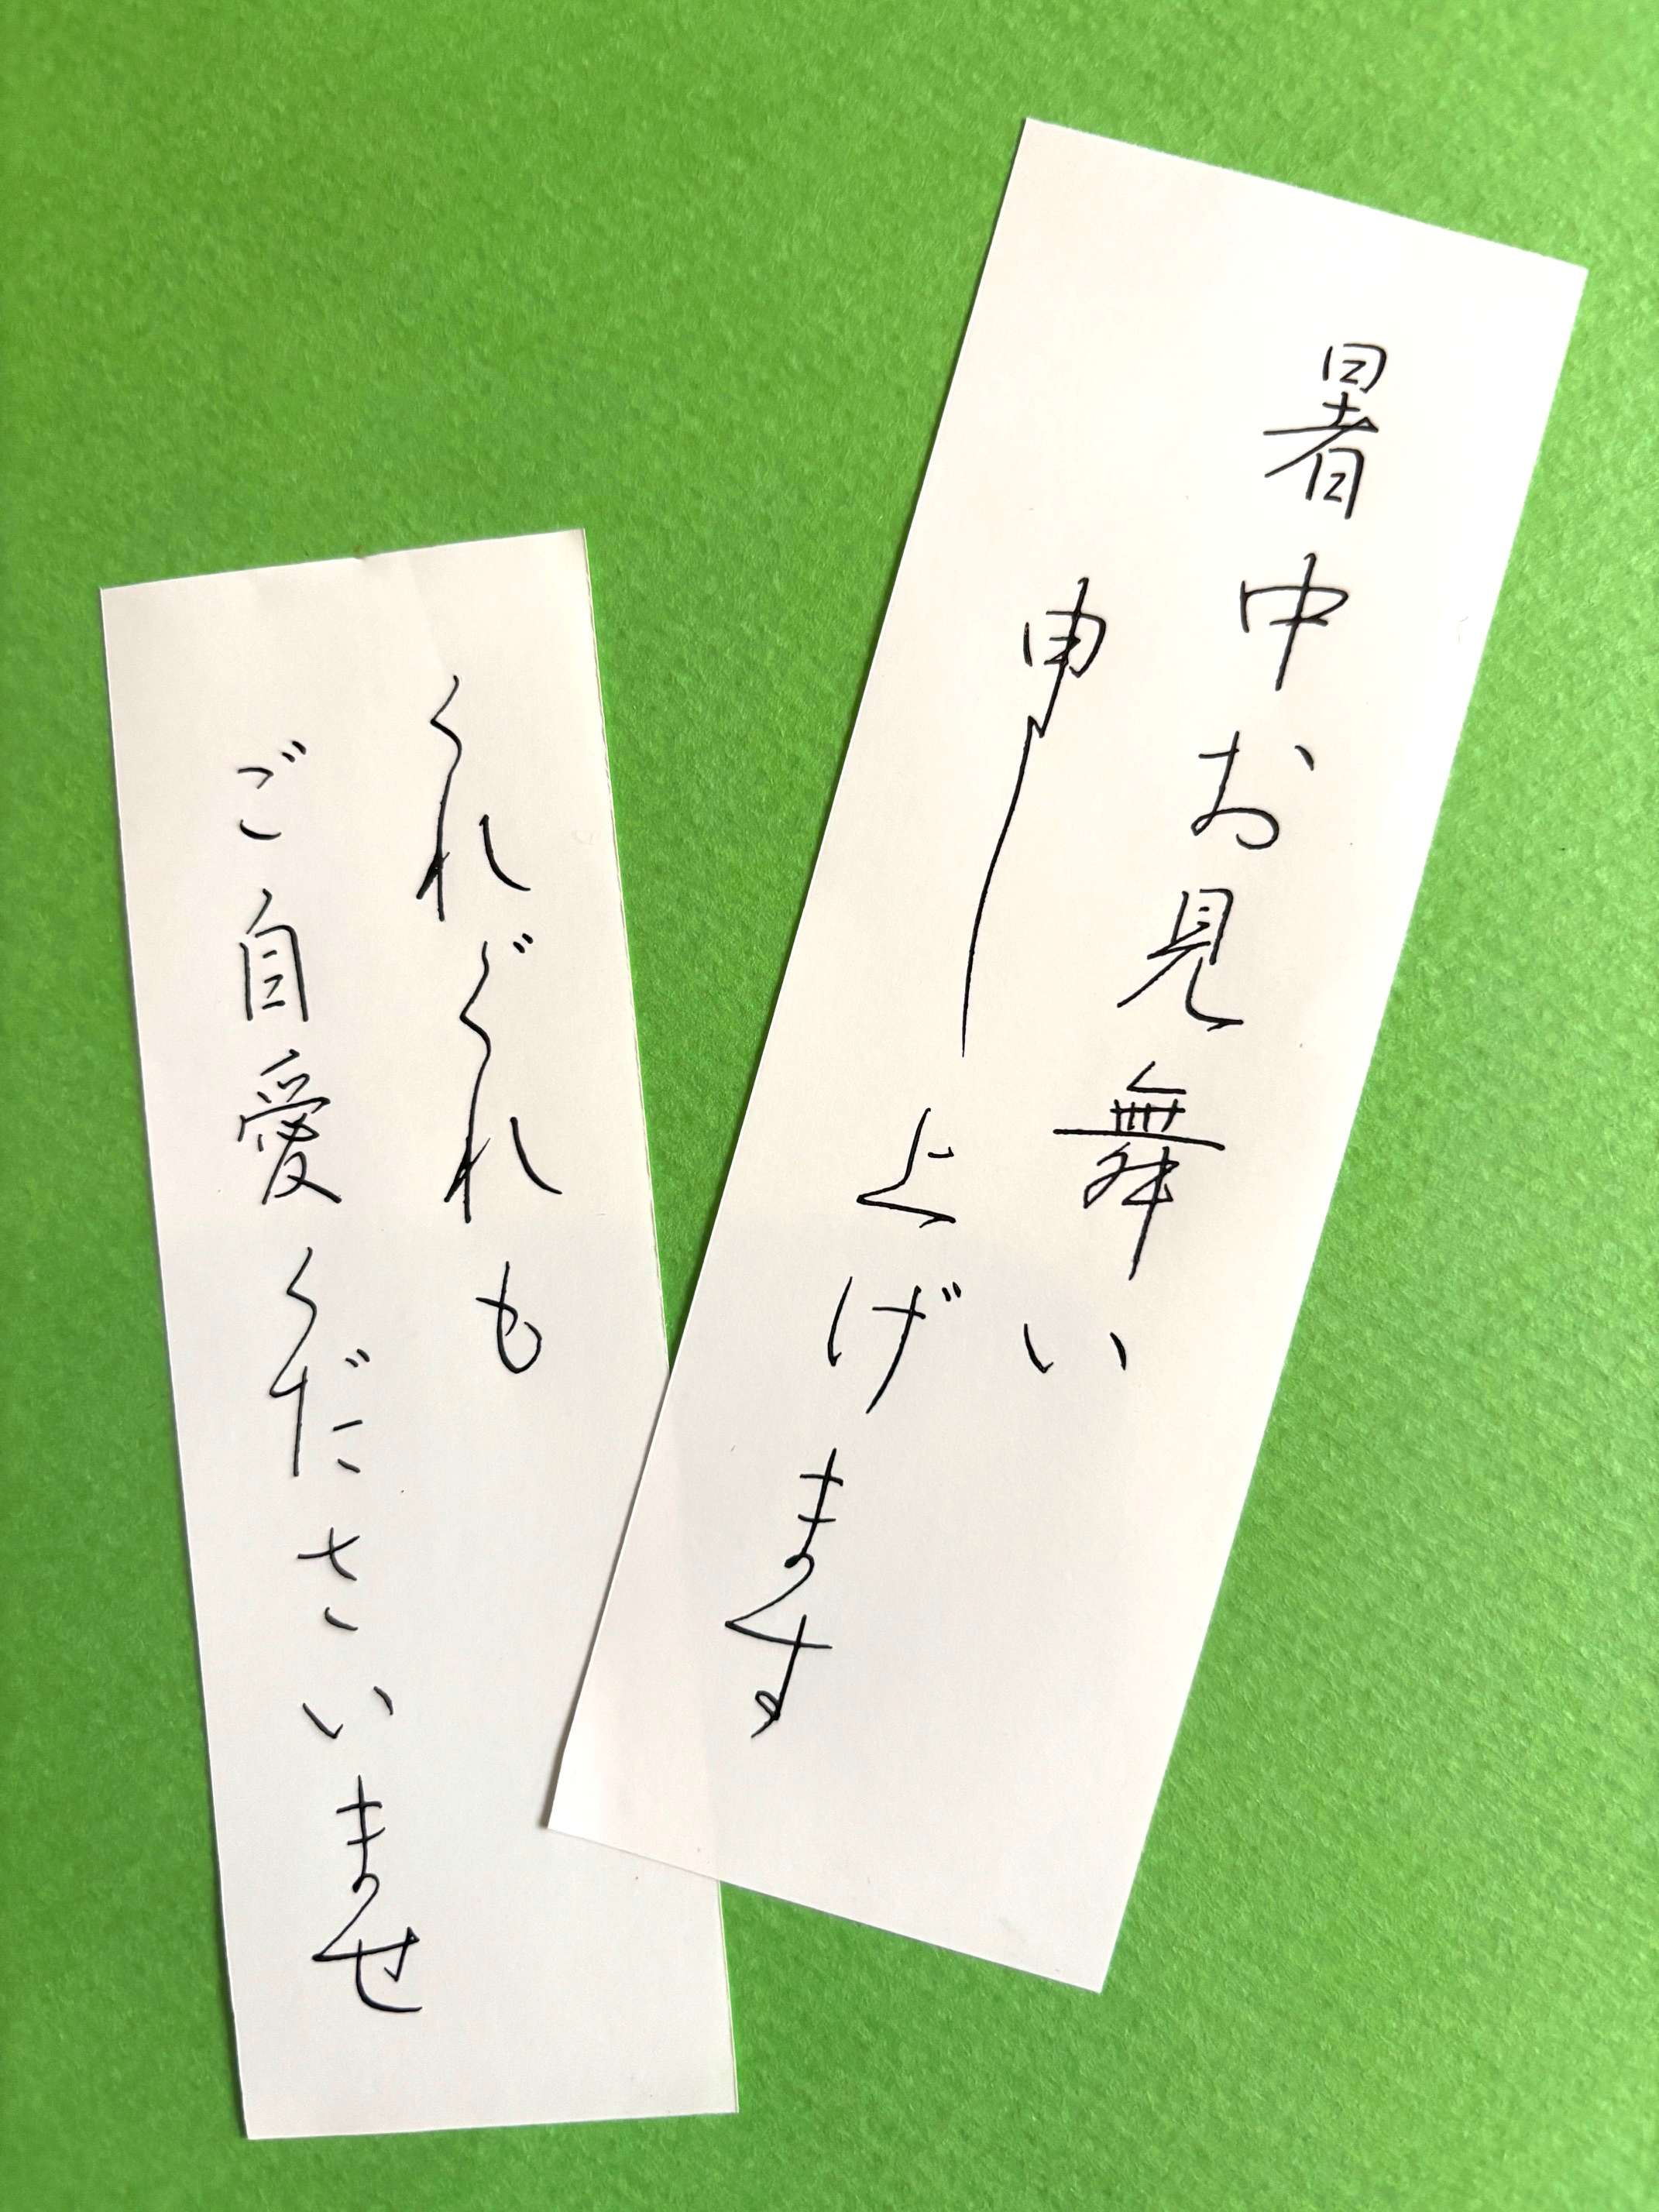 暑中お見舞い
申し上げます
くれぐれも
ご自愛くださいませ